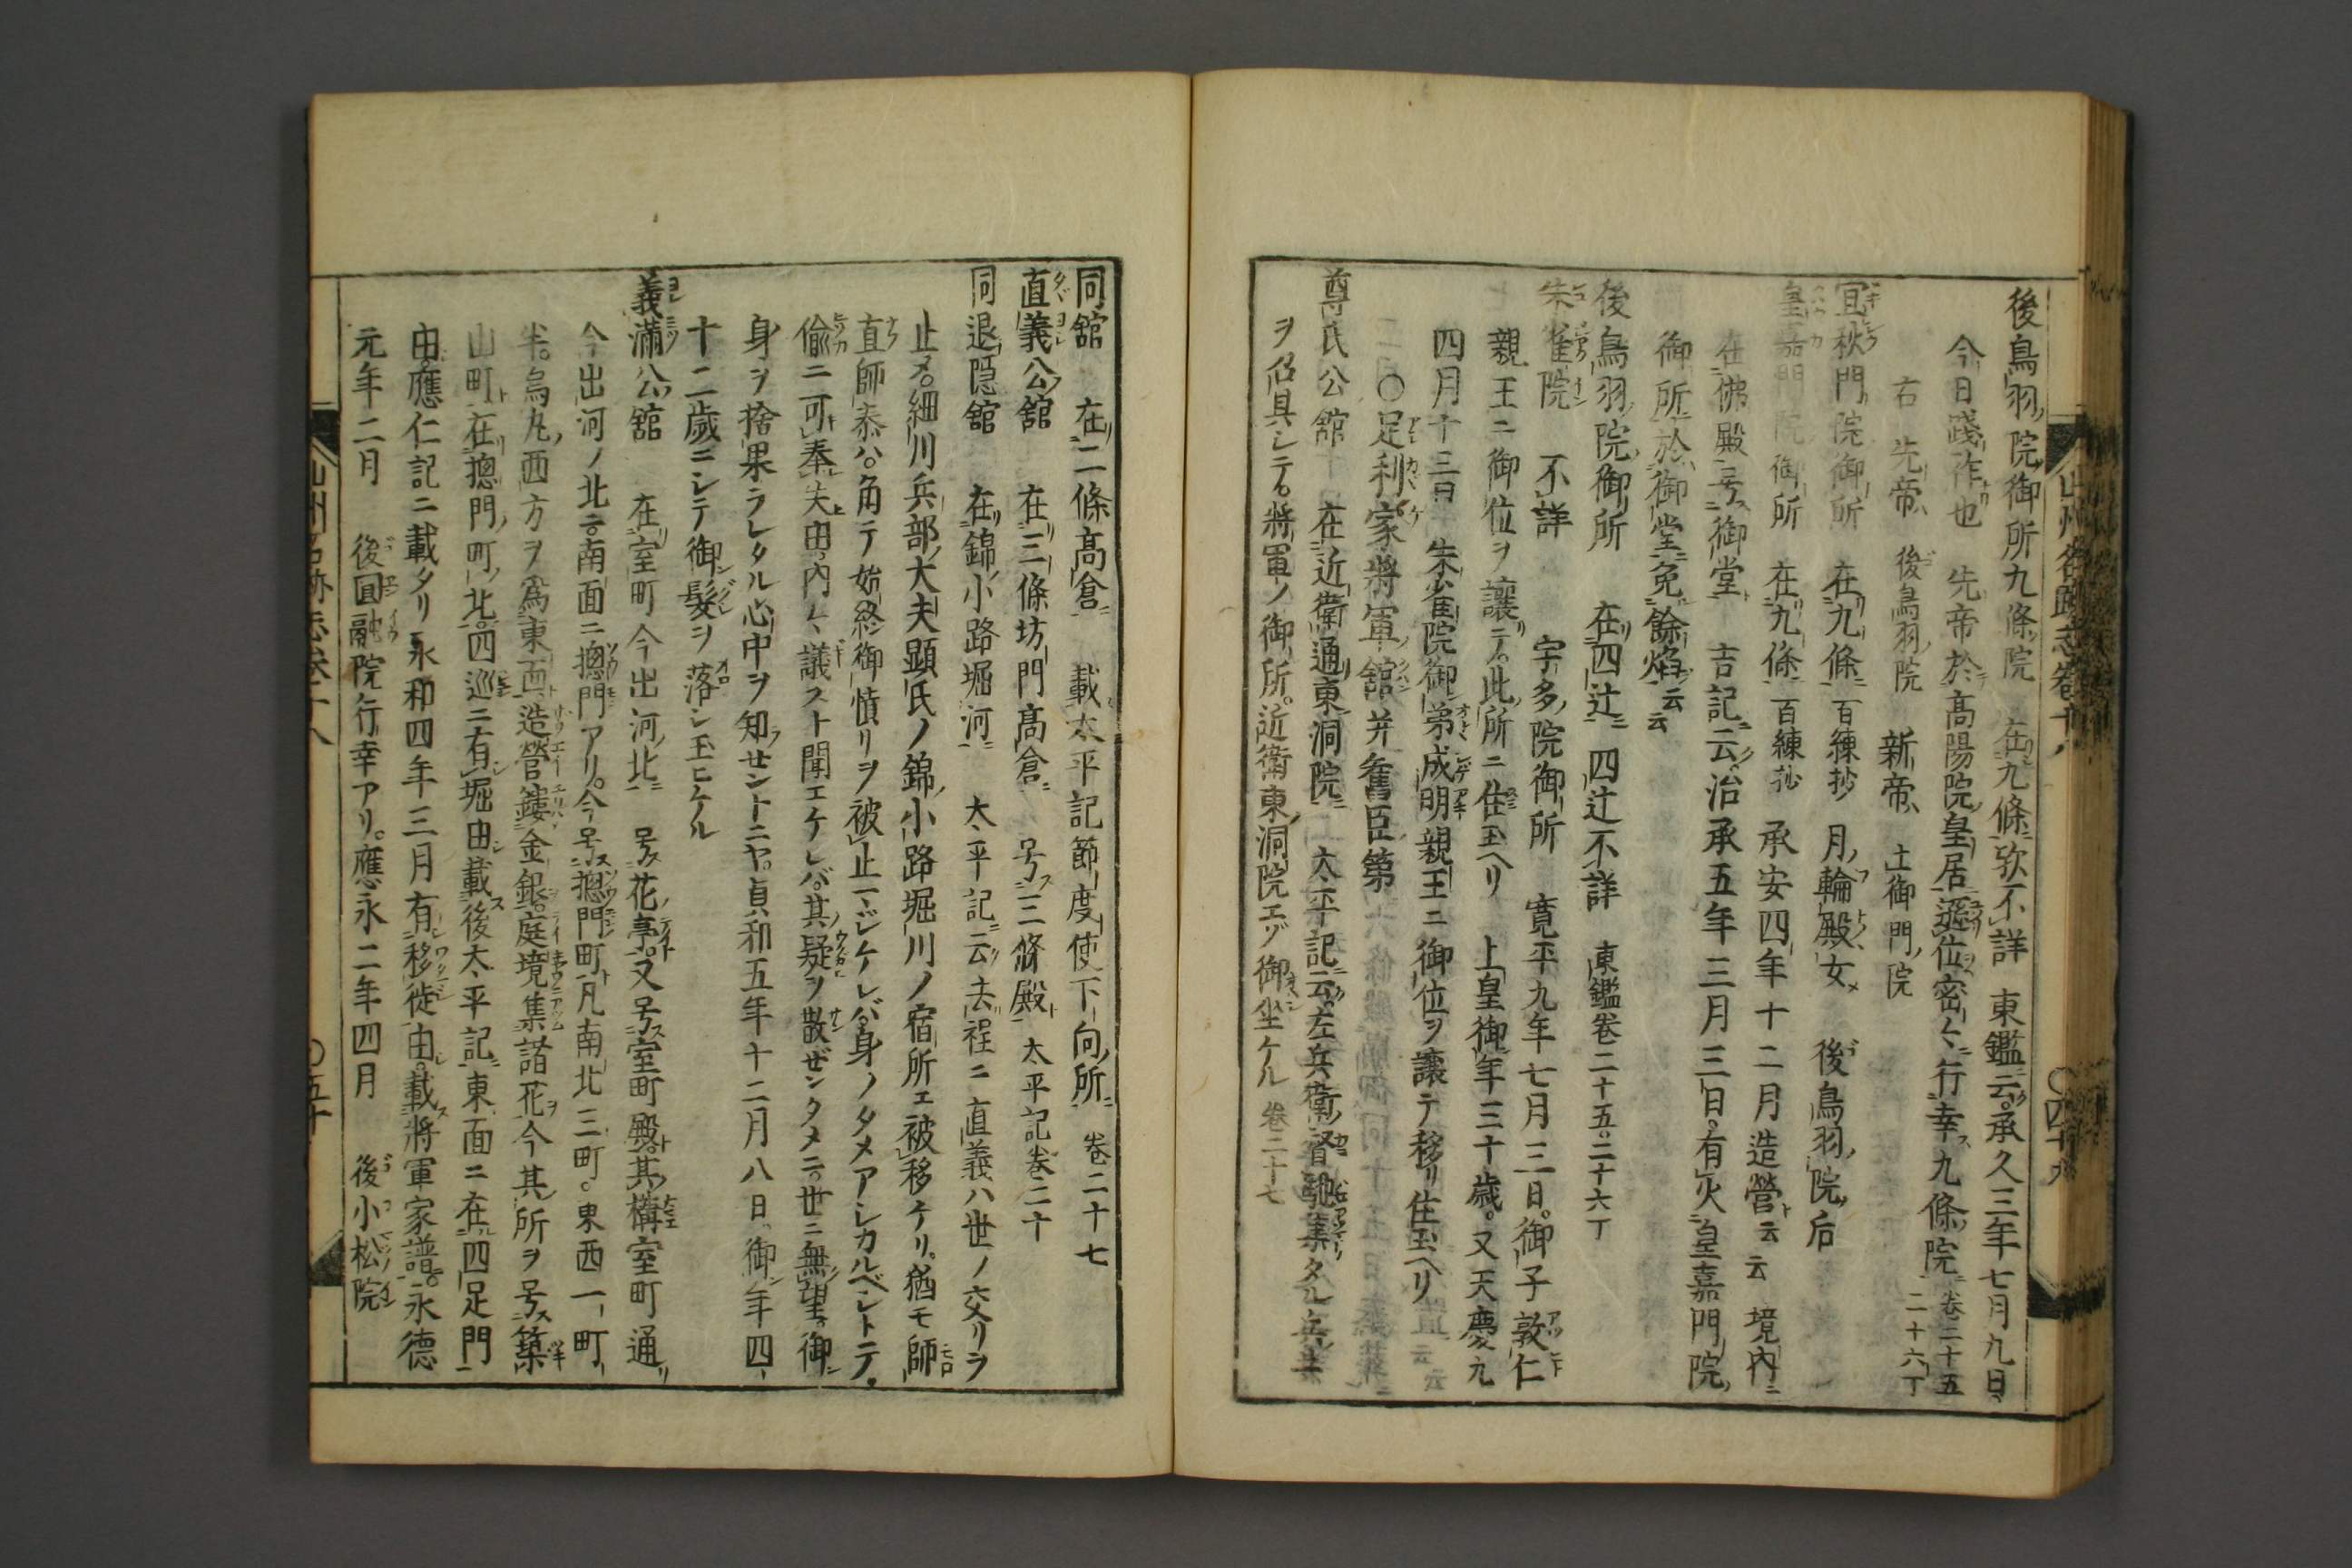 後鳥羽院御所九條院　在九條歟不詳　東鑑云承久三年七月九日
今日踐祚也　先帝於高陽院皇居遜位密々行幸九條院　卷二十五
二十六丁
右　先帝　後鳥羽院　新帝　土御門院
宜秋門院御所　在九條　百練抄　月輪殿女　後鳥羽院后
皇嘉門院御所　在九條　百練抄　承安四年十二月造營云云　境內
在佛殿号御堂　吉記云治承五年三月三日有火皇嘉門院
御所於御堂免餘焰云云
後鳥羽院御所　在四辻　四辻不詳　東鑑卷二十五。二十六丁
朱雀院　不詳　宇多院御所　寬平九年七月三日。御子敦仁
親王ニ御位ヲ讓テ。此所ニ住玉ヘリ　上皇御年三十歲。又天慶九
四月十三日　朱雀院御弟成明親王ニ御位ヲ讓テ移リ住玉ヘリ
○足利家將軍舘并舊臣第
尊氏公舘　在近衛通東洞院　太平記云。左兵衛督馳集タル兵共
ヲ召具シテ。將軍ノ御所。近衛東洞院エゾ御坐ケル　卷二十七
山州名跡志卷十八　○四十九
同舘　在二條高倉　載太平記節度使下向所　卷二十七
直義公舘　在三條坊門高倉　号三條殿　太平記卷二十
同退隱舘　在錦小路堀河　太平記云去程ニ直義ハ世ノ交リヲ
止メ。細川兵部大夫顯氏ノ錦小路堀川ノ宿所エ被移ケリ。猶モ師
直師泰ハ。角テ始終御憤リヲ被止マジケレバ。身ノタメアシカルベシトテ。
偷ニ可奉失由內々議スト聞エケレバ。其疑ヲ散ゼンタメニ。世ニ無望。御
身ヲ捨果ラレタル心中ヲ知セントニヤ。貞和五年十二月八日御年四
十二歲ニシテ御髮ヲ落シ玉ヒケル
義滿公舘　在室町今出河北　号花亭。又号室町殿。其構室町通
今出河ノ北ニ。南面ニ摠門アリ。今号摠門町凡南北三町。東西一町
半。烏丸西方ヲ爲東面造營鏤金銀。庭境集諸花今其所ヲ号築
山町在摠門町北。四巡ニ有堀由載後太平記東面ニ在四足門
由。應仁記ニ載タリ永和四年三月有移徙由。載將軍家譜。永德
元年二月　後圓融院行幸アリ。應永二年四月　後小松院
山州名跡志卷十八　○五十